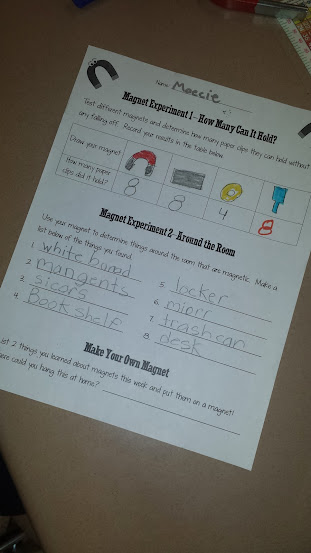 Name Maecie
Magnet Experiment 1-How Many Can It Hold?
Test different magnets and determine how many paper clips they can hold without
any falling off. Record your results in the table below.
Draw your magnet
How many paper clips did it hold? 8 8 4 8
Magnet Experiment 2-Around the Room
Use your magnet to determine things around the room that are magnetic. Make a
list below of the things you found.
1. white bured
2. mangents
3. sicors
4. Book shelf
5. locker
6. mirrr
7. trashcan
8. desk
Make Your Own Magnet
List 2 things you learned about magnets this week and put them on a magnet!
here could you hang this at home?